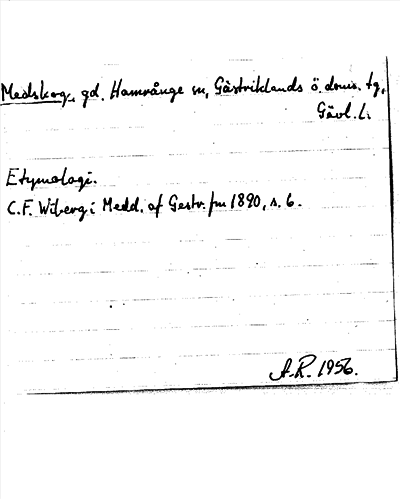 Medskog, gd. Hamrånge sn, Gästriklands ö. doms. tg,
Gävl. l.
Etymologi.
C.F. Wiberg i Medd. af Gestr. fmf 1890, s. 6.
A.R. 1956.